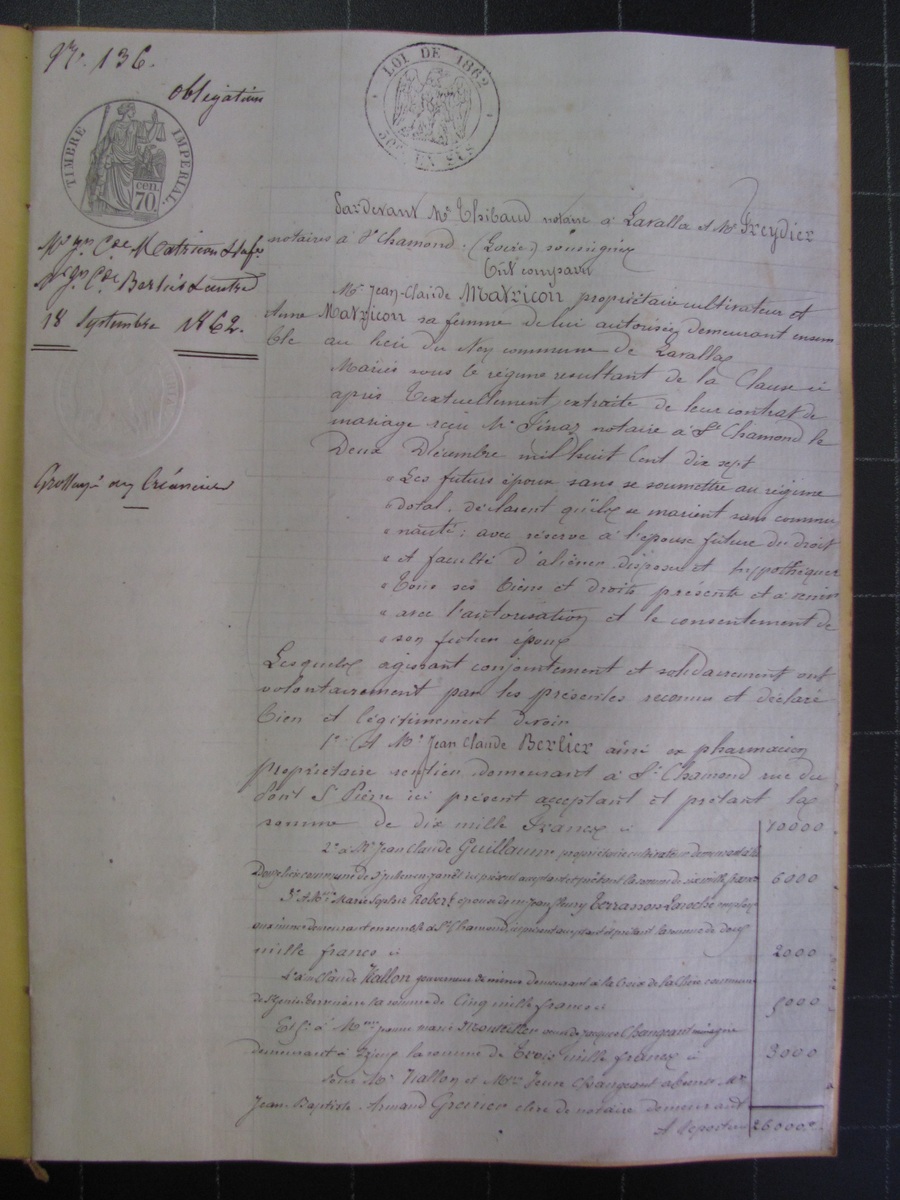 N°. 136.
Obligation
LOI DE 1862
50C EN SUS
TIMBRE IMPERIAL
cen.
70.
18 Septembre 1862.
Par devant Me Thibaud notaire à Lavalla et Me Freydier
notaires à St Chamond (Loire) soussignés
Ont comparu
Mr Jean-Claude Matricon propriétaire cultivateur et
Anne Matricon sa femme de lui autorisée demeurant ensem
ble au lieu du Ney commune de Lavalla
Mariés sous le régime résultant de la Clause ci
après textuellement extraite de leur contrat de
mariage reçu Me Finaz notaire à St Chamond le
Deux Décembre mil huit Cent dix sept
« Les futurs époux sans se soumettre au régime
« dotal, déclarent qu'ils se marient sans commu
« nauté ; avec réserve à l'épouse future du droit
« et faculté d'aliéner disposer et hypothéquer
« tous ses biens et droits présents et à venir
« avec l'autorisation et le consentement de
« son futur époux
Lesquels agissant conjointement et solidairement ont
volontairement par les présentes reconnu et déclaré
bien et légitimement devoir
1° A Mr Jean Claude Berlier aîné ex pharmacien
propriétaire rentier demeurant à St Chamond rue du
Pont St Pierre ici présent acceptant et prêtant la
somme de dix mille Francs ci 10000
2° à Mr Jean Claude Guillaume propriétaire cultivateur demeurant
commune de St julien en ici présent acceptant et prêtant la somme de six mille francs 6000
3° A Mme Marie Robert épouse de Mr jean fleury Terrasson
aux mines demeurant ensemble à St Chamond, ici présent acceptant et prêtant la somme de deux
mille francs ci 2000
4° à Claude Vallon gouverneur de mines demeurant à la Croix de commune
de la somme de Cinq mille francs 5000
Et 5° à Mme marie veuve de jacques Changeant
demeurant à la somme de Trois mille francs ci 3000
Pour Mr Vallon et Mme Changeant absents Mr
Jean-Baptiste Armand Grenier clerc de notaire demeurant
A reporter 26000